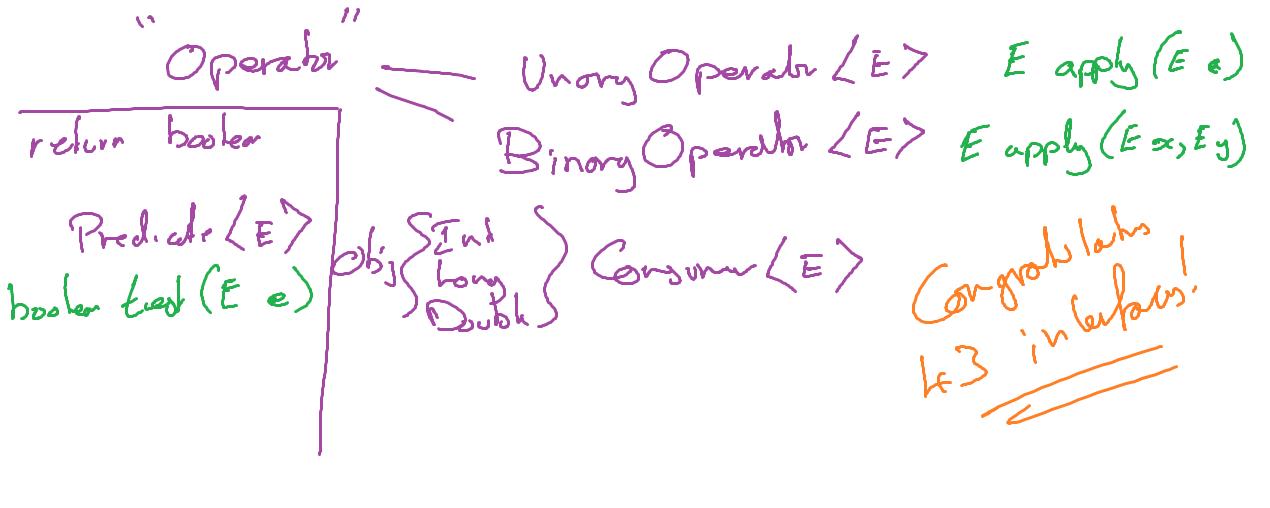 "Operator"
Unary Operator <E> E apply (E e)
Binary Operator <E> E apply (E x, E y)
return boolean
Predicate <E>
boolean test (E e)
Obj { Int Long Double } Consumer <E>
Congratulations
43 interfaces!